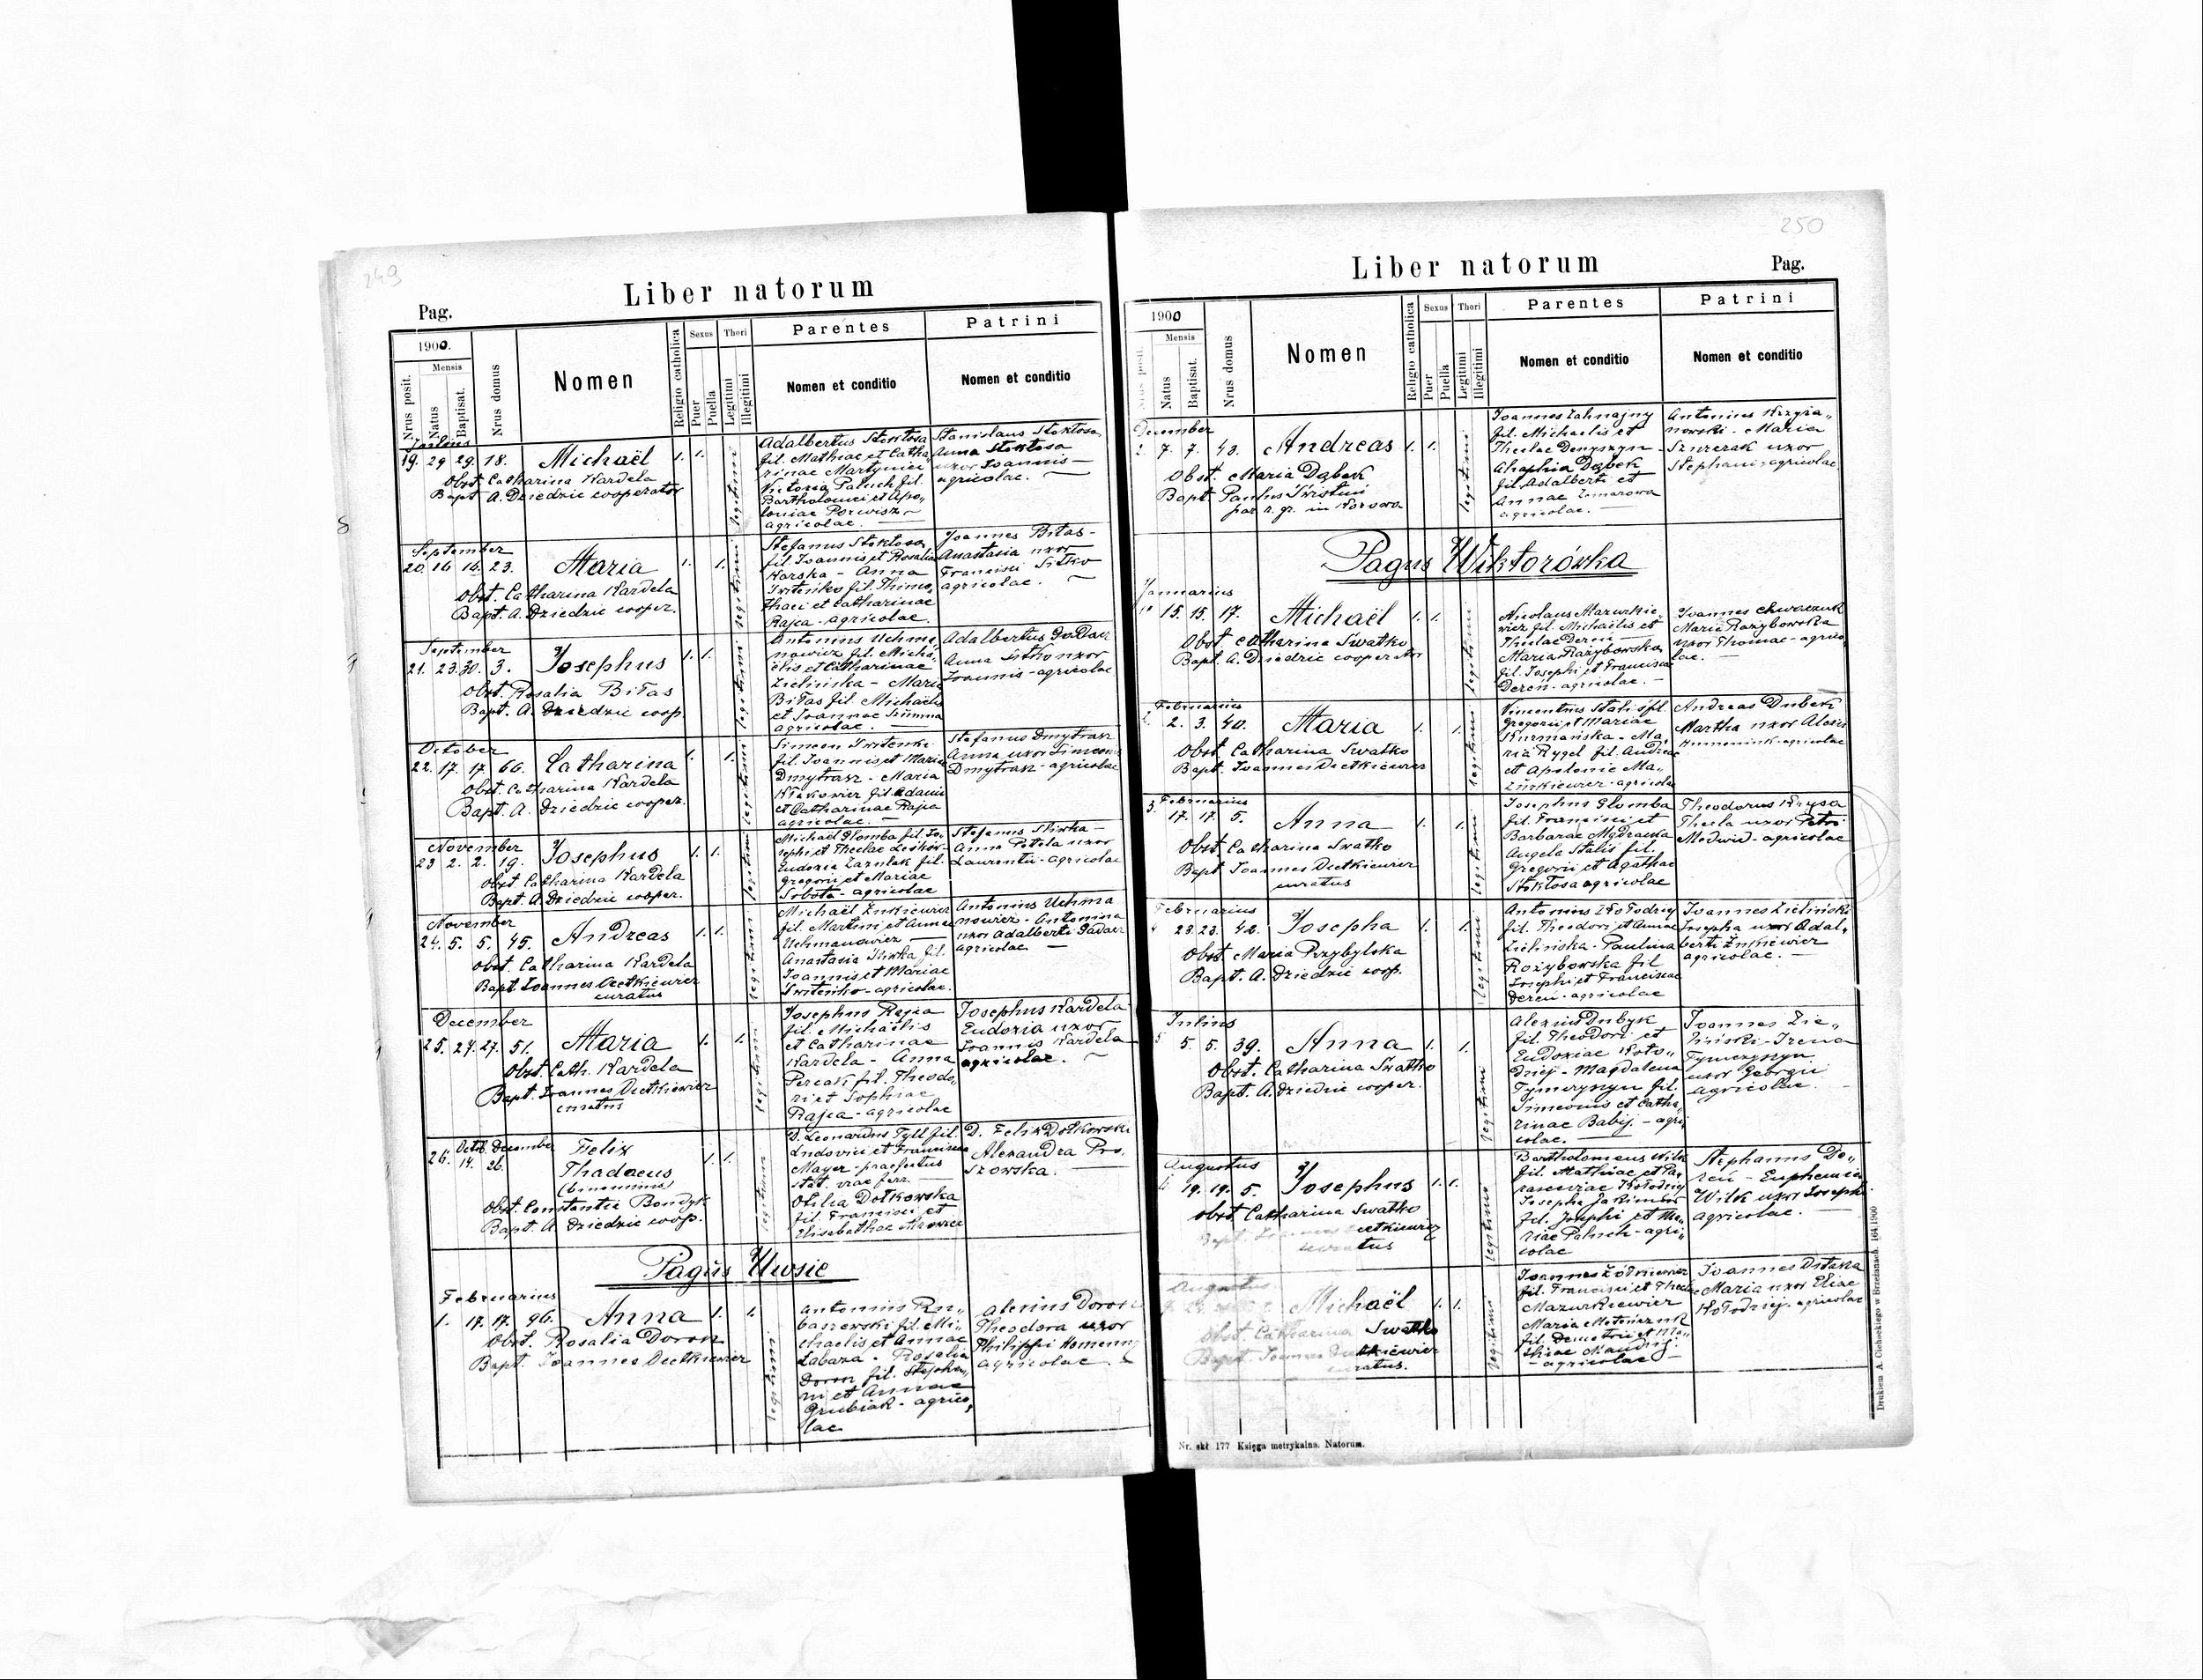 249
Liber natorum
Pag.
1900.
Mensis
Nrus posit.
Natus
Baptisat.
Nrus domus
Nomen
Religio catholica
Sexus
Puer
Puella
Thori
Legitimi
Illegitimi
Parentes
Nomen et conditio
Patrini
Nomen et conditio
Julius
19. 29 29. 18. Michaël 1. 1.
Obst. Catharina Kardela
Bapt. A. Dziedzic cooperator
legitimi
Adalbertus Stoktosa
fil. Mathiae et Catha
rinae Martyniec
Victoria Paluch fil.
Bartholomei et Apo,,
loniae Porwisz
agricolae.
Stanislaus Stoktosa
Anna Stoktosa
uxor Joannis
agricolae.
September
20. 16 16. 23. Maria 1. 1.
Obst. Catharina Kardela
Bapt. A. Dziedzic cooper.
legitimi
Stefanus Stoktosa
fil. Joannis et Rosalia
Karska - Anna
fil. Thimo,
thaei et Catharinae
Rajca - agricolae.
Joannes Bitas -
Anastasia uxor
Francisci Sitko
agricolae.
September
21. 23. 30. 3. Josephus 1. 1.
Obst. Rosalia Bitas
Bapt. A. Dziedzic coop.
legitimi
Antonius Uchma
nowicz fil. Micha
ëlis et Catharinae
Zielińska - Maria
Bitas fil. Michaëlis
et Joannae
agricolae.
Adalbertus Gadacz
Anna Sitko uxor
Joannis - agricolae
October
22. 17. 17. 66. Catharina 1. 1.
Obst. Catharina Kardela
Bapt. A. Dziedzic cooper.
legitimi
Simeon
fil. Joannis et Maria
Dmytrasz - Maria
fil. Adami
et Catharinae Rajca
agricolae.
Stefanus Dmytrasz
Anna uxor Simeonis
Dmytrasz - agricolae
November
23 2. 2. 19. Josephus 1. 1.
Obst. Catharina Kardela
Bapt. A. Dziedzic cooper.
legitimi
Michaël Glomba fil. Jo
sephi et Theclae
Eudoxia fil.
Gregorii et Mariae
Sobota - agricolae
Stefanus Sliwka -
Anna uxor
Laurentii - agricolae
November
24. 5. 5. 45. Andreas 1. 1.
Obst. Catharina Kardela
Bapt. Joannes Dectkiewicz
curatus
legitimi
Michaël Żukiewicz
fil. Martini et Annae
Uchmanowicz
Anastasia Sliwka fil.
Joannis et Mariae
agricolae.
Antonius Uchma
nowicz - Antonina
uxor Adalberti Gadacz
agricolae
December
25. 27. 27. 51. Maria 1. 1.
Obst. Cath. Kardela
Bapt. Joannes Dectkiewicz
curatus
legitimi
Josephus Rajca
fil. Michaëlis
et Catharinae
Kardela - Anna
fil. Theodo,
ri et Sophiae
Rajca - agricolae
Josephus Kardela
Eudoxia uxor
Joannis Kardela
agricolae.
Octob. December
26. 14. 26. Felix
Thadaeus
(binominis) 1. 1.
Obst. Constantia Bondyk
Bapt. A. Dziedzic coop.
legitimi
D. Leonardus Tyll fil.
Ludovici et Francisca
Mayer - praefectus
stat. viae ferr.
Otilia Dołkowska
fil. Francisci et
Elisabethae
D. Felix Dołkowski
Alexandra Pro,
szowska.
Pagus Uwsie
Februarius
1. 17. 17. 96. Anna 1. 1.
Obst. Rosalia Doron
Bapt. Joannes Dectkiewicz
legitimi
Antonius Ru,,
baszewski fil. Mi,
chaelis et Annae
Łabaza - Rosalia
Doron fil. Stepha,
ni et Annae
Grubiak - agrico,
lae
Alexius Doron
Theodora uxor
Philippi
agricolae.
250
Liber natorum
Pag.
1900
Mensis
Natus
Baptisat.
Nrus domus
Nomen
Religio catholica
Sexus
Puer
Puella
Thori
Legitimi
Illegitimi
Parentes
Nomen et conditio
Patrini
Nomen et conditio
December
2. 7. 7. 43. Andreas 1. 1.
Obst. Maria Dąbek
Bapt. Paulus
par. r. gr. in
legitimi
Joannes
fil. Michaelis et
Theclae Denyszyn -
Ahaphia Dąbek
fil. Adalberti et
Annae
agricolae.
Antonius Krzyża,,
nowski - Maria
uxor
Stephani - agricolae
Pagus Wiktorówka
Januarius
15. 15. 17. Michaël 1. 1.
Obst. Catharina Swatko
Bapt. A. Dziedzic cooperator
legitimi
Nicolaus Mazurkie
wicz fil. Michaëlis et
Theclae Dereń
Maria Rożyborska
fil. Josephi et Francisca
Dereń - agricolae.
Joannes
Maria Rożyborska
uxor Thomae - agrico
lae.
Februarius
2. 2. 3. 40. Maria 1. 1.
Obst. Catharina Swatko
Bapt. Joannes Dectkiewicz
legitimi
Vincentius Stalis fil.
Gregorii et Mariae
- Ma,
ria Rygel fil. Andreae
et Apolonie Ma,,
- agricolae
Andreas Dubek
Martha uxor Alexii
agricolae
Februarius
3. 17. 17. 5. Anna 1. 1.
Obst. Catharina Swatko
Bapt. Joannes Dectkiewicz
curatus
legitimi
Josephus Glomba
fil. Francisci et
Barbarae
Angela Stalis fil.
Gregorii et Agathae
Stoktosa agricolae
Theodorus Krysa
Thecla uxor Petri
Medwid - agricolae
Februarius
4 23. 23. 42. Josepha 1. 1.
Obst. Maria Przybylska
Bapt. A. Dziedzic coop.
legitimi
Antonius Kołodziej
fil. Theodori et Annae
Zielińska - Paulina
Rożyborska fil
Josephi et Franciscae
Dereń - agricolae
Joannes Zieliński
Josepha uxor Adal,
berti Żukiewicz
agricolae.
Julius
5 5. 5. 39. Anna 1. 1.
Obst. Catharina Swatko
Bapt. A. Dziedzic cooper.
legitimi
Alexius Dubyk
fil. Theodori et
Eudoxiae Koło,,
dziej - Magdalena
Tymczyszyn fil.
Simeonis et Catha,
rinae Babij. - agri,
colae.
Joannes Zie,,
liński - Irena
Tymczyszyn
uxor Georgii
agricolae.
Augustus
19. 19. 5. Josephus 1. 1.
Obst. Catharina Swatko
Bapt. Joannes Dectkiewicz
curatus
legitimi
Bartholomeus Wilk
fil. Mathiae et Pa,
rasceviae Kołodziej
Josepha
fil. Josephi et Ma,,
riae Paluch - agri,,
colae
Stephanus De,,
reń - Euphemia
Wilk uxor Josephi
agricolae.
Augustus
Michaël 1. 1.
Obst. Catharina Swatko
Bapt. Joannes Dectkiewicz
curatus.
legitimi
Joannes Żółkiewicz
fil. Francisci et Theclae
Mazurkiewicz
Maria
fil. Demetrii et Ma,,
- agricolae -
Joannes
Maria uxor Eliae
Kołodziej - agricolae
Nr. skł. 177 Księga metrykalna. Natorum.
Drukiem A. Cichockiego w Brzeżanach. 164/1900